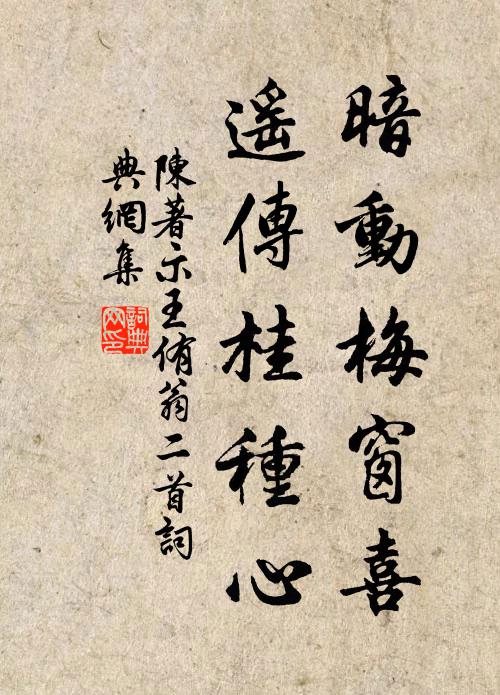 暗動梅窗喜
遥傳桂種心
陳著示王侑翁二首詞
典網集
詞典
网印